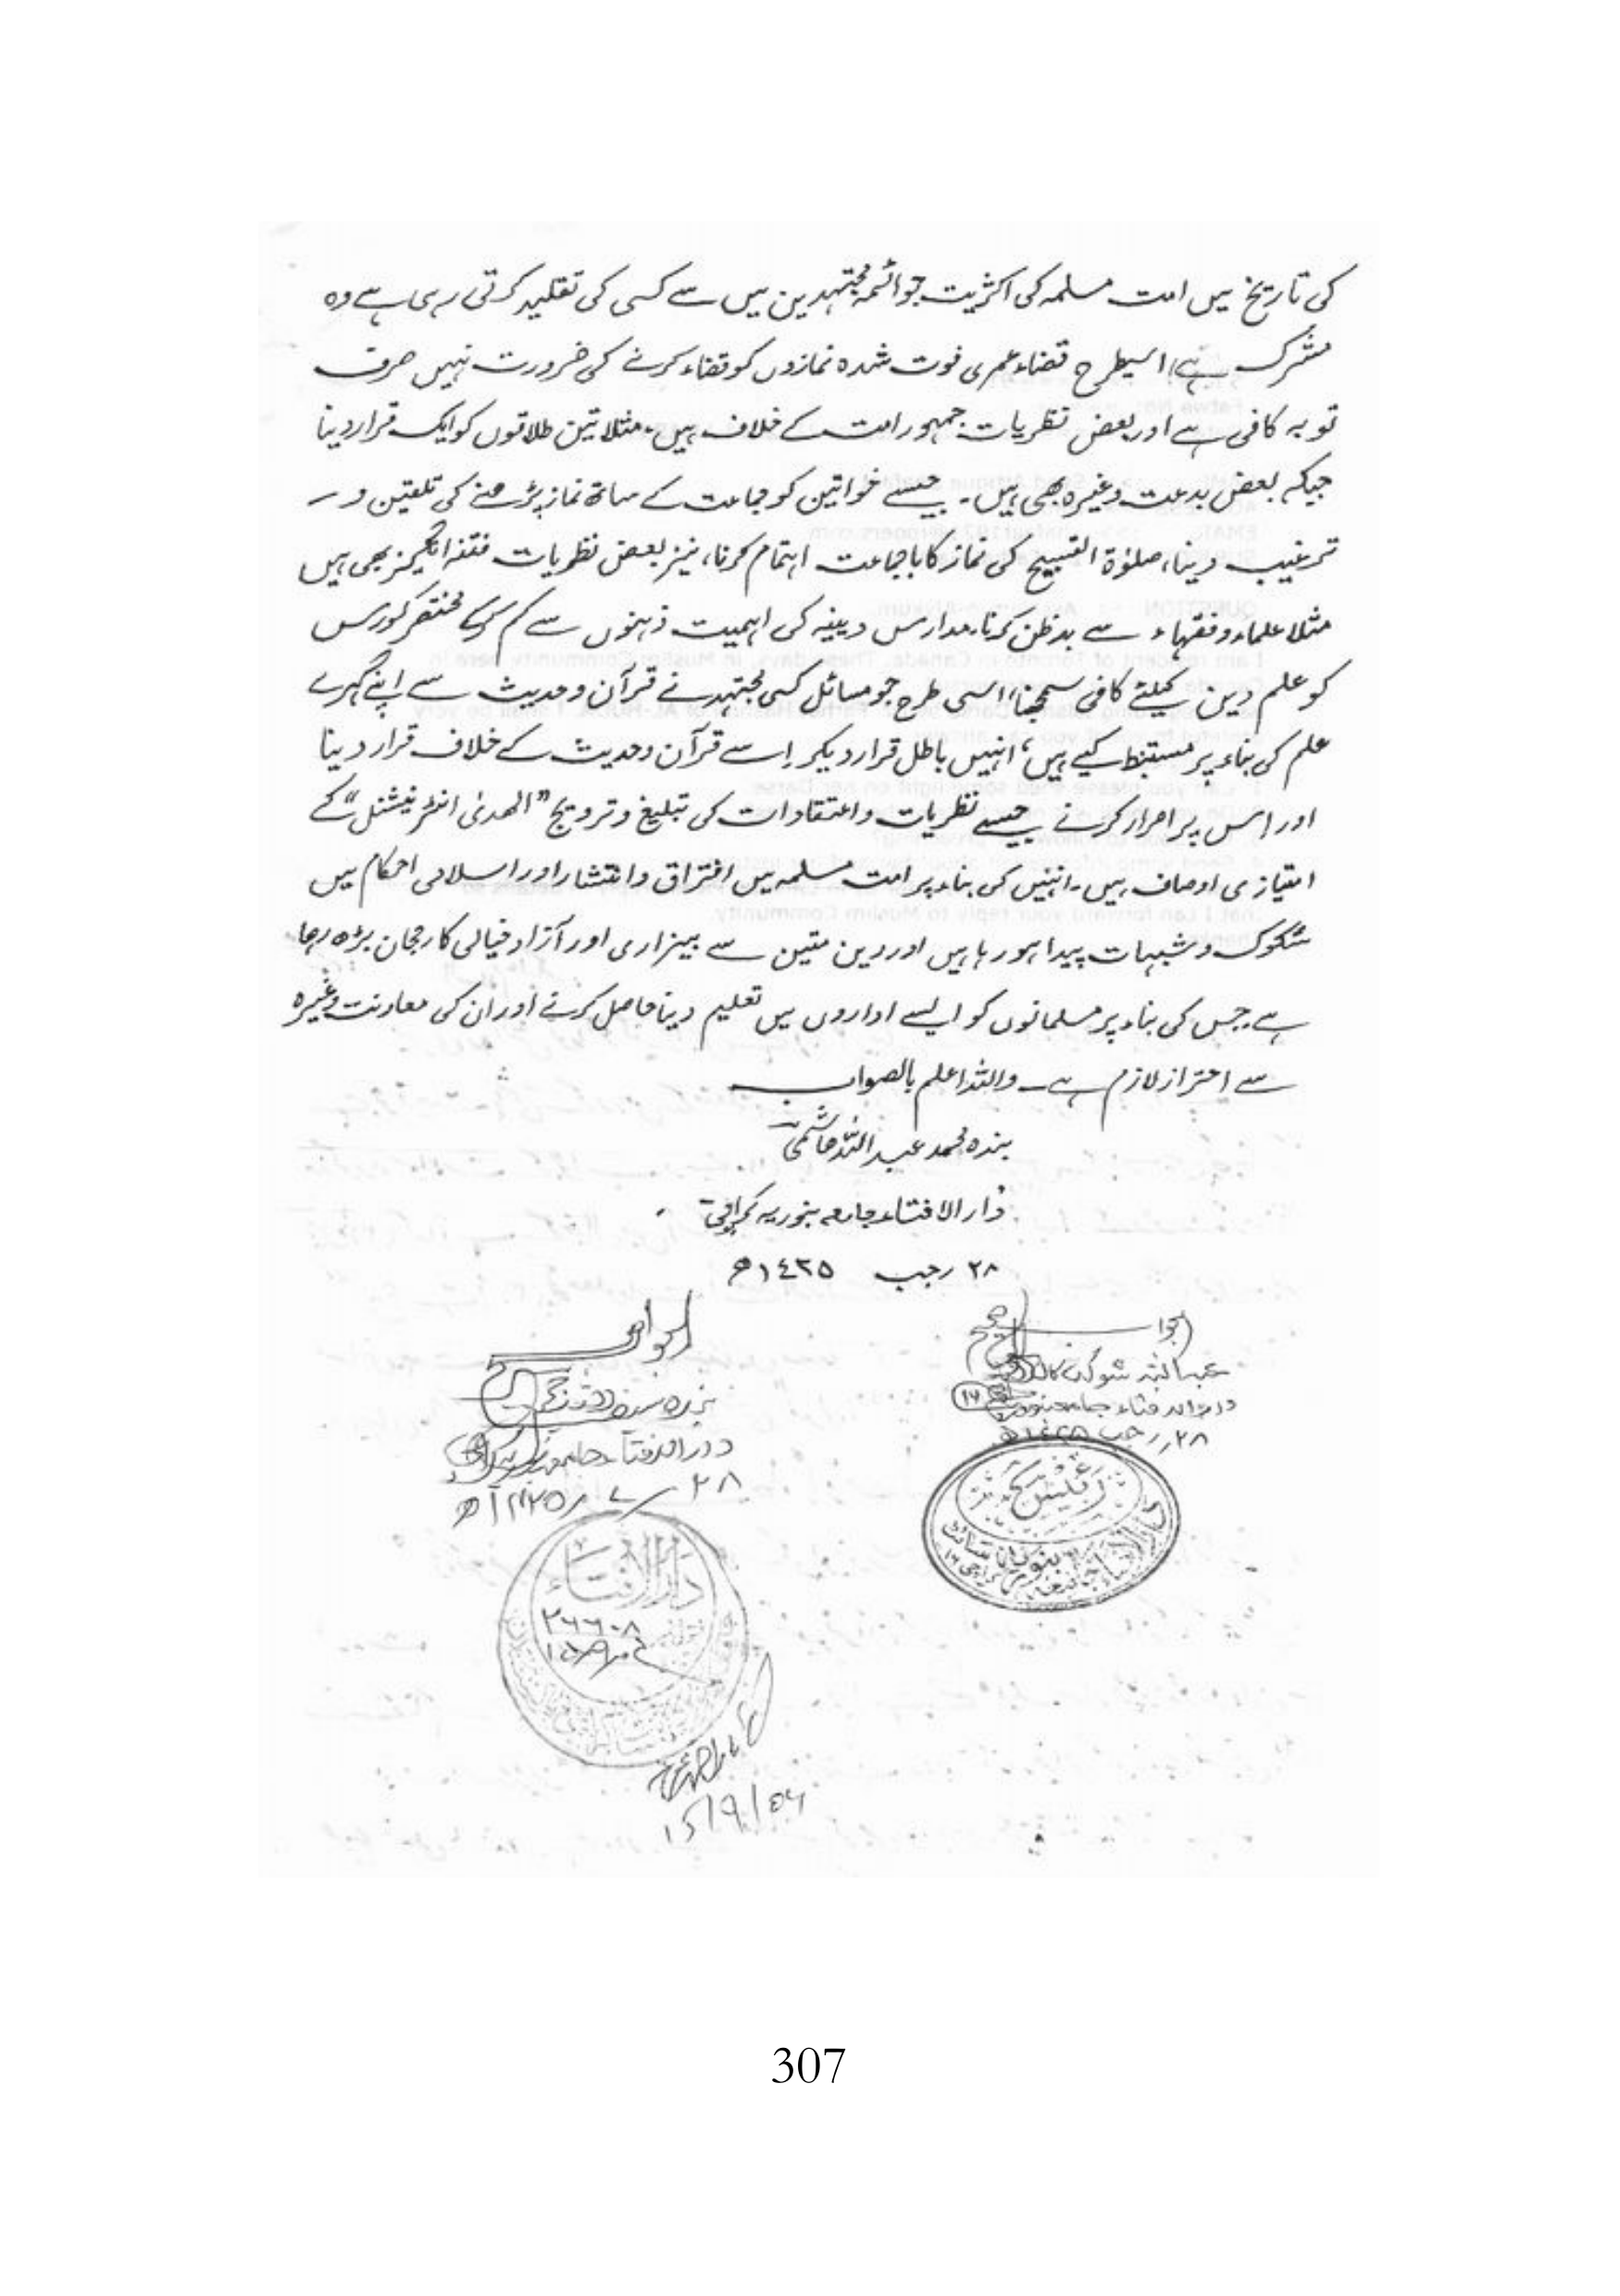 کی تاریخ میں امت مسلمہ کی اکثریت جو ائمہ مجتہدین میں سے کسی کی تقلید کرتی رہی ہے وہ
مشرک ہے، اسیطرح قضاء عمری فوت شدہ نمازوں کو قضاء کرنے کی ضرورت نہیں صرف
توبہ کافی ہے اور بعض نظریات جمہور امت کے خلاف ہیں۔ مثلا تین طلاقوں کو ایک قرار دینا
جبکہ بعض بدعت وغیرہ بھی ہیں۔ جیسے خواتین کو جماعت کے ساتھ نماز پڑھنے کی تلقین و
ترغیب دینا، صلوٰۃ التسبیح کی نماز کا باجماعت اہتمام کرنا، نیز بعض نظریات فتنہ انگیز بھی ہیں
مثلا علماء و فقہاء سے بدظن کرنا، مدارس دینیہ کی اہمیت ذہنوں سے کم کر کے مختصر کورس
کو علم دین کیلئے کافی سمجھنا، اسی طرح جو مسائل کسی مجتہد نے قرآن و حدیث سے اپنے گہرے
علم کی بناء پر مستنبط کیے ہیں، انہیں باطل قرار دیکر اِسے قرآن و حدیث کے خلاف قرار دینا
اور اس پر اصرار کرنے جیسے نظریات و اعتقادات کی تبلیغ و ترویج ”الھدیٰ انٹرنیشنل“ کے
امتیازی اوصاف ہیں۔ انہیں کی بناء پر امت مسلمہ میں افتراق و انتشار اور اسلامی احکام میں
شکوک و شبہات پیدا ہو رہا ہیں اور دین متین سے بیزاری اور آزاد خیالی کا رجحان بڑھ رہا
ہے جس کی بناء پر مسلمانوں کو ایسے اداروں میں تعلیم دینا حاصل کرنے اور ان کی معاونت وغیرہ
سے احتراز لازم ہے۔ واللہ اعلم بالصواب
بندہ محمد عبد اللہ ھاشمی
دار الافتاء جامعہ بنوریہ کراچی
۲۸ رجب ۱٤۲٥ھ
الجواب صحیح
دار الافتاء جامعہ بنوریہ
۲۸ رجب
الجواب صحیح
دار الافتاء جامعہ بنوریہ
۲۸ / ۷ / ۱۴۲۵ھ
رئیس
دار الافتاء جامعہ بنوریہ سائٹ کراچی ۱۶
دَارُ الاِفتَاء
۲۶۶۰۸
15/9/04
307